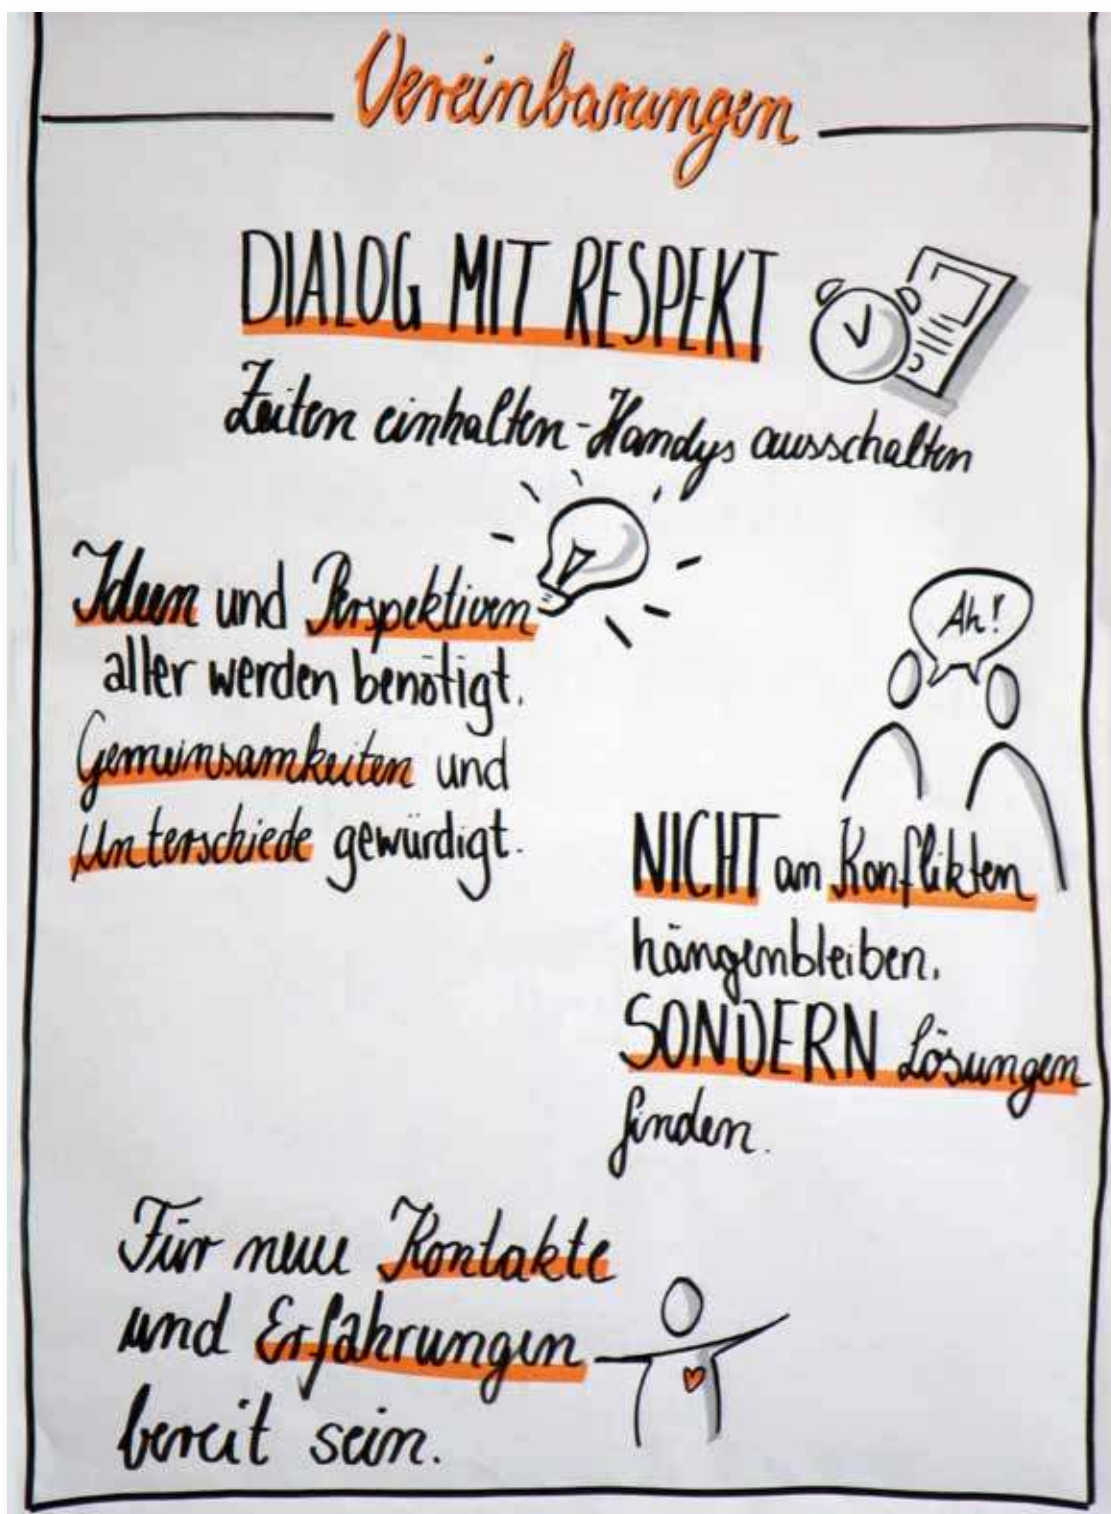 Vereinbarungen
DIALOG MIT RESPEKT
Zeiten einhalten - Handys ausschalten
Ideen und Perspektiven
aller werden benötigt.
Gemeinsamkeiten und
Unterschiede gewürdigt.
Ah!
NICHT an Konflikten
hängenbleiben.
SONDERN Lösungen
finden.
Für neue Kontakte
und Erfahrungen
bereit sein.